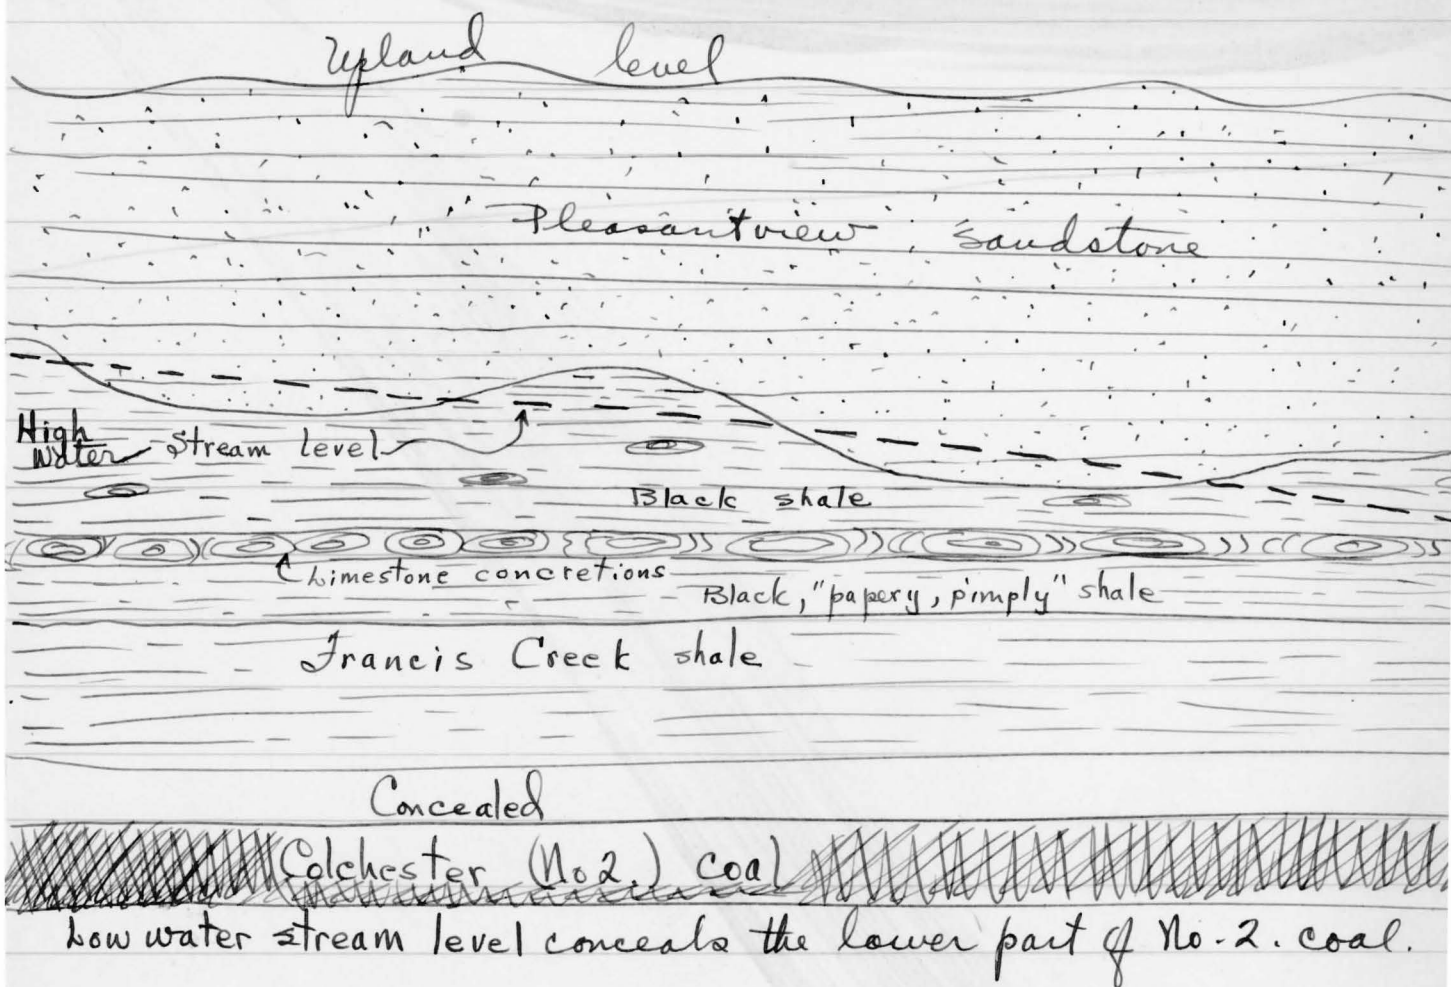 Upland level
Pleasantview sandstone
High
Water stream level
Black shale
Limestone concretions
Black, "papery, pimply" shale
Francis Creek shale
Concealed
Colchester (No 2.) coal
Low water stream level conceals the lower part of No. 2. coal.